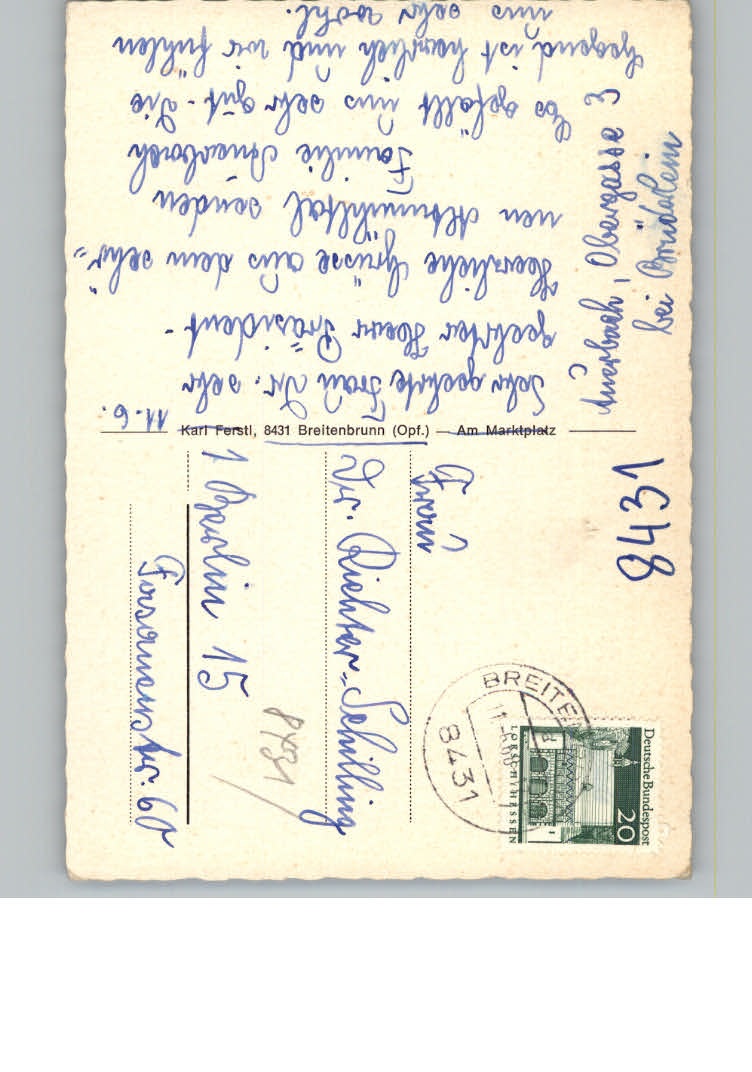 11.6.
Sehr geehrte Frau Dr. sehr
geehrter Herr Präsident -
Herzliche Grüsse aus dem sehr "
nen Altmühltal senden
Familie Auerbach
Es gefällt uns sehr gut - Die
Gegend ist herrlich und wir fühlen
uns sehr wohl.
Auerbach, Obergasse 3
bei
8431
Karl Ferstl, 8431 Breitenbrunn (Opf.) — Am Marktplatz
Frau
Dr. Richter-Schilling
1 Berlin 15
Fasanenstr. 60
8431
BREITEN
8431
Deutsche Bundespost
20
LORSCH/HESSEN